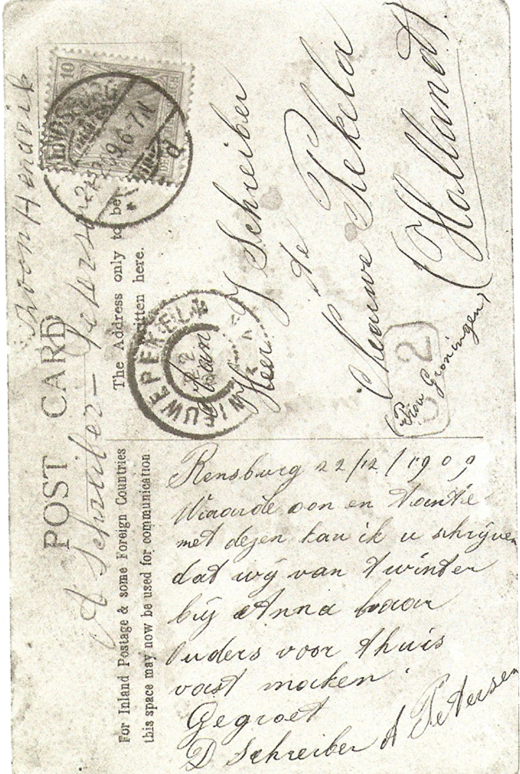 POST CARD
The Address only to be
written here.
For Inland Postage & some Foreign Countries
this space may now be used for communication
10
A Schreiber – Petersen
oom Hendrik
Aan
Heer J Schreiber
te
Nieuwe Pekela
(Holland)
(Prov Groningen)
2
NIEUWE PEKELA
Rensburg 22/12/1909
Waarde oom en tante
met dezen kan ik u schrijven
dat wij van twinter
bij Anna haar
ouders voor thuis
vast maken.
Gegroet
D Schreiber A Petersen